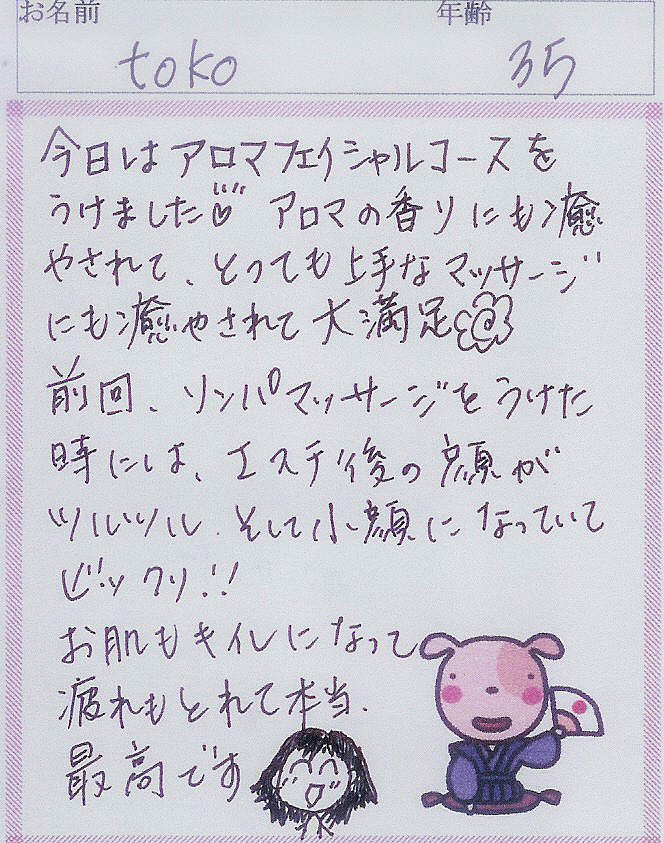 お名前 年齢
toko 35
今日はアロマフェイシャルコースを
うけました♡ アロマの香りにも癒
やされて、とっても上手なマッサージ
にも癒やされて大満足
前回、リンパマッサージをうけた
時には、エステ後の顔が
ツルツル.そして小顔になっていて
ビックリ!!
お肌もキレイになって
疲れもとれて本当.
最高です